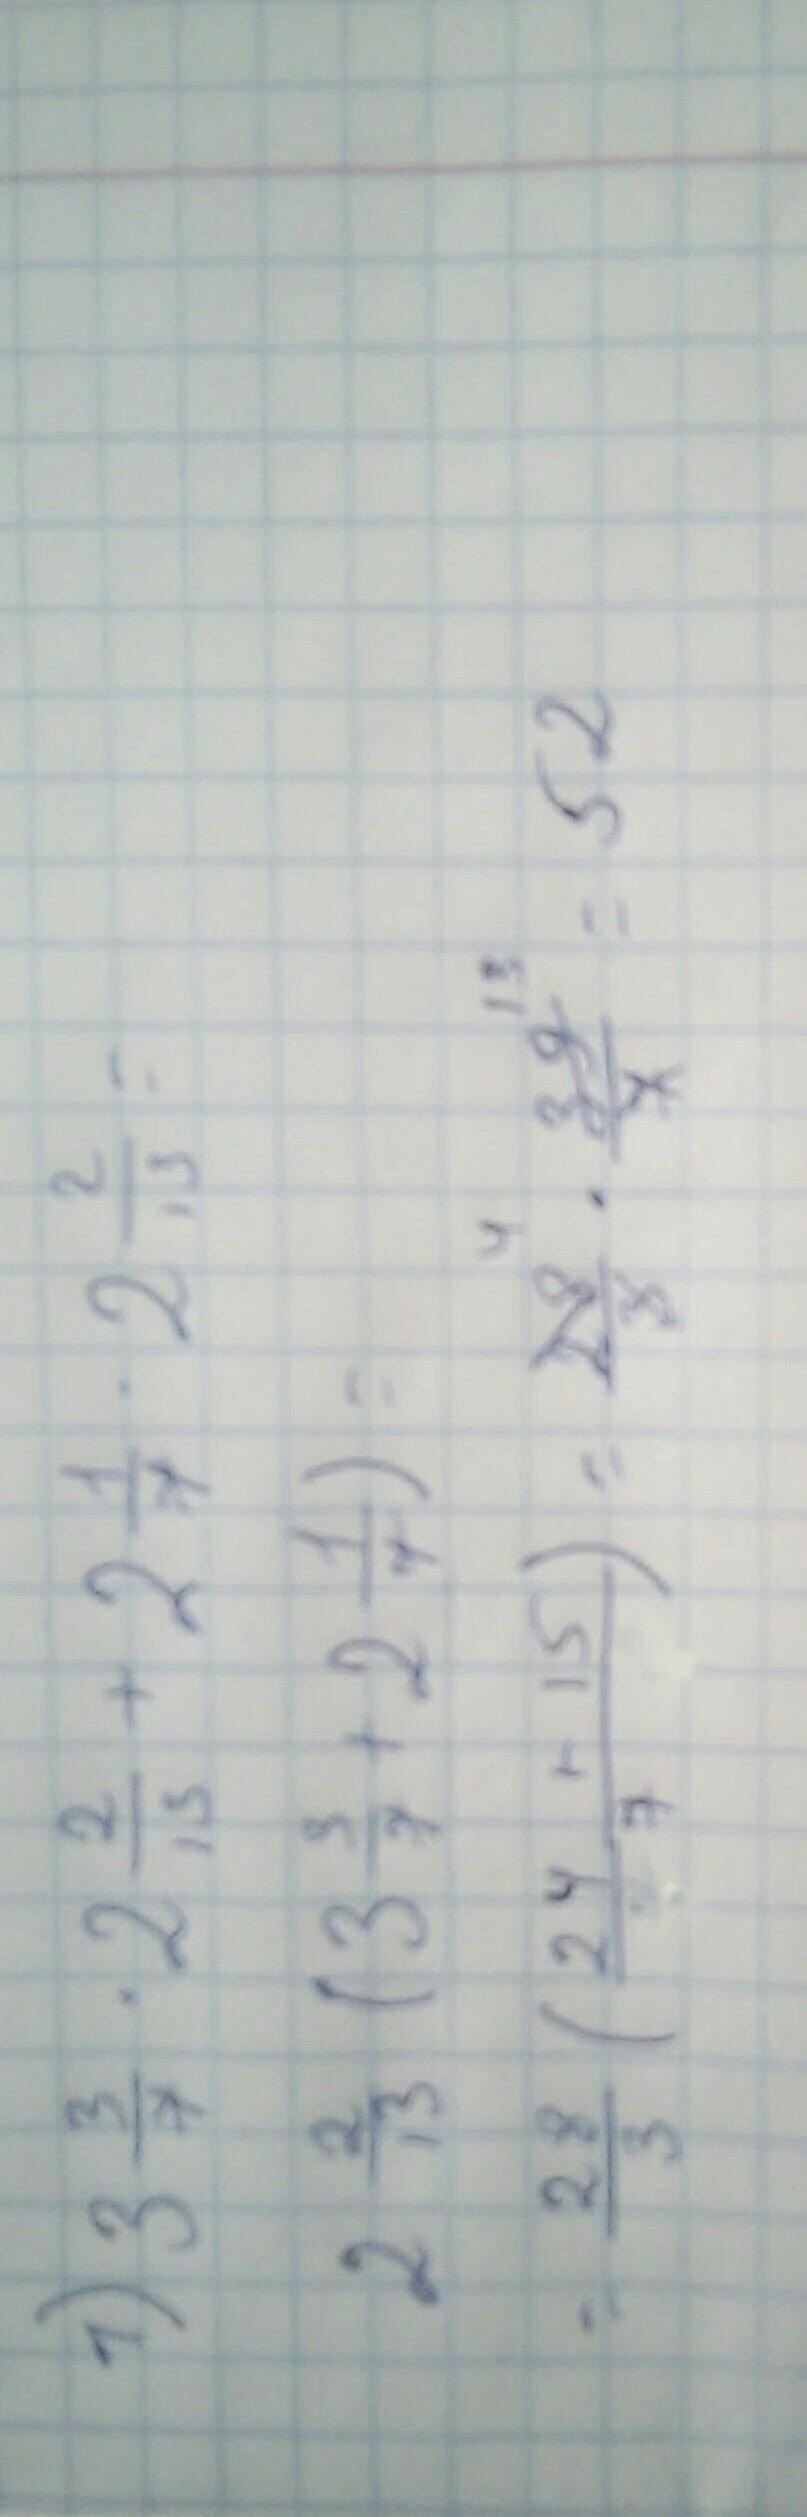 1) 3 3/7 · 2 2/13 + 2 1/7 · 2 2/13 =
2 2/13 (3 3/7 + 2 1/7) =
= 28/3 (24 + 15 / 7) = 28/3 4 · 39/7 13 = 52